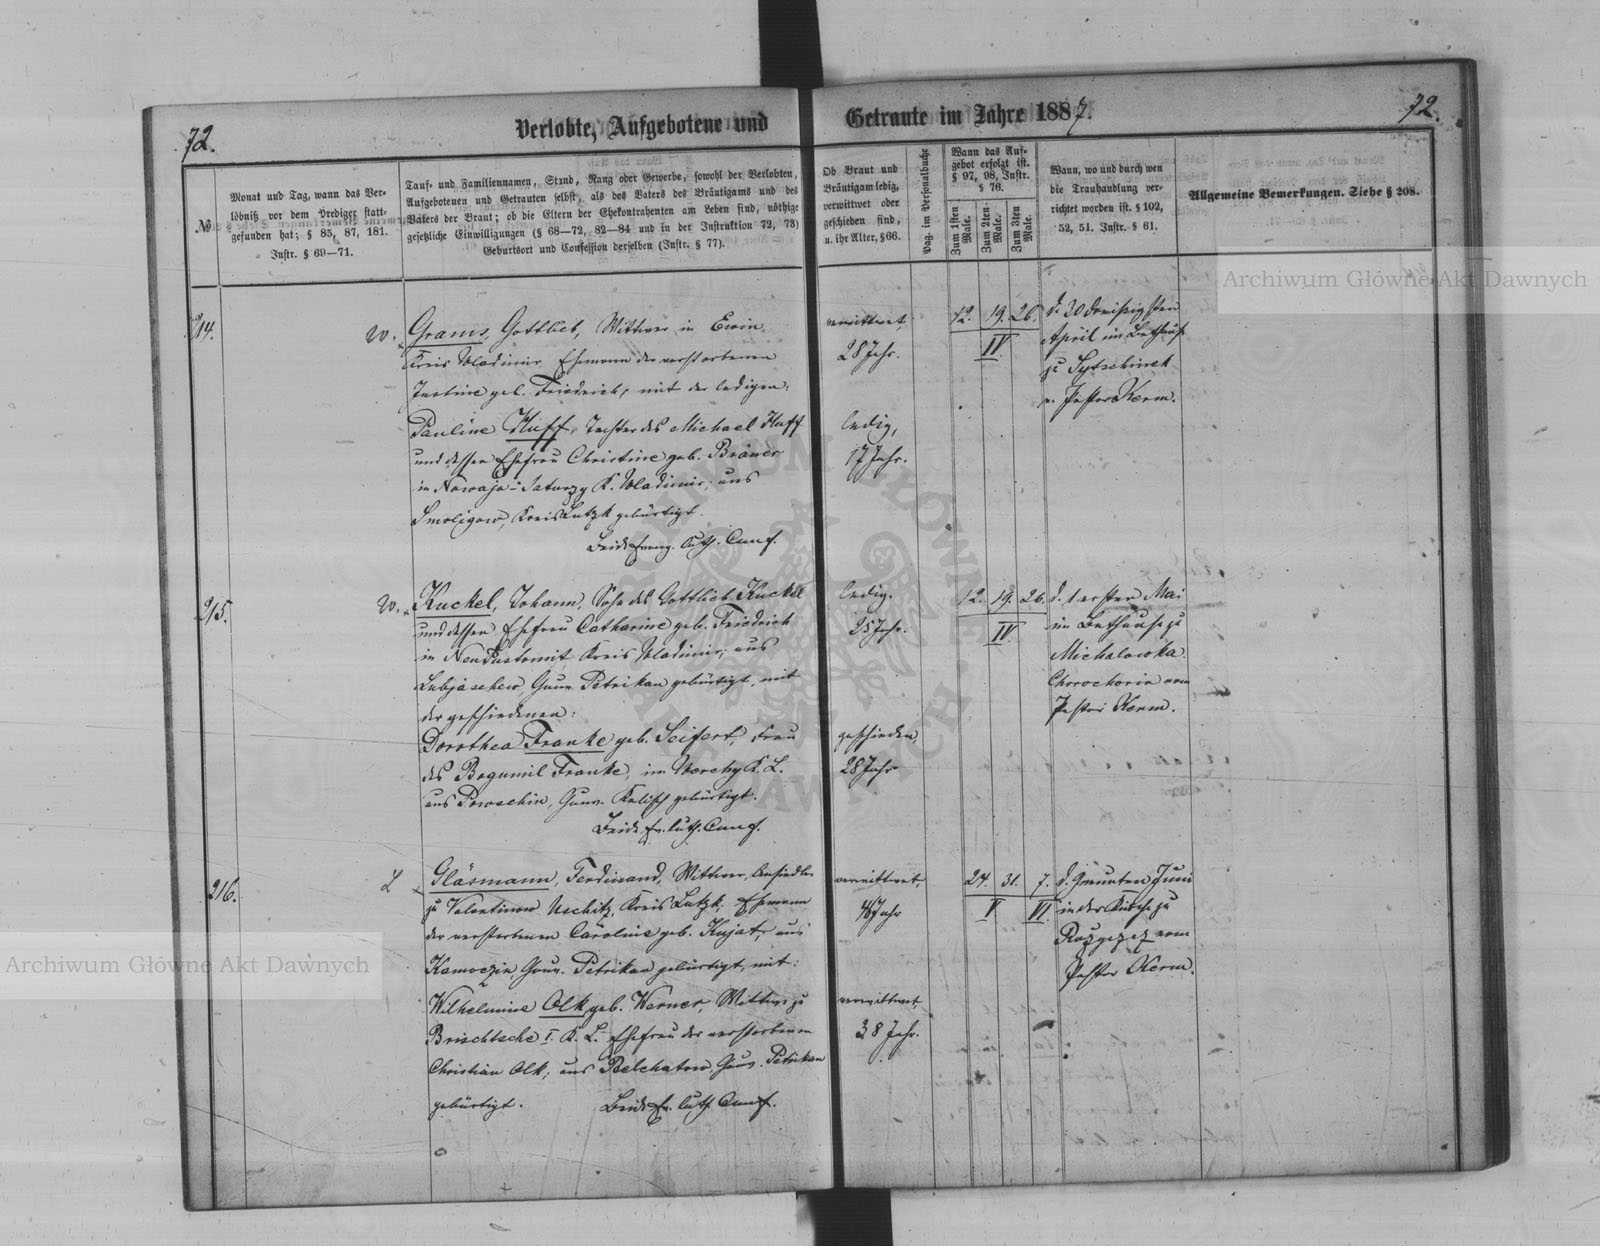 72.
Verlobte, Aufgebotene und
Getraute im Jahre 1887.
72.
№
Monat und Tag, wann das Ver-
löbniß vor dem Prediger statt-
gefunden hat; § 85, 87, 181.
Instr. § 69—71.
Tauf- und Familiennamen, Stand, Rang oder Gewerbe, sowohl der Verlobten,
Aufgebotenen und Getrauten selbst, als des Vaters des Bräutigams und des
Vaters der Braut; ob die Eltern der Ehekontrahenten am Leben sind, nöthige
gesetzliche Einwilligungen (§ 68—72, 82—84 und in der Instruktion 72, 73)
Geburtsort und Confession derselben (Instr. § 77).
Ob Braut und
Bräutigam ledig,
verwittwet oder
geschieden sind,
u. ihr Alter, § 66.
Pag. im Personalbuche
Wann das Auf-
gebot erfolgt ist.
§ 97, 98, Instr.
§ 76.
Zum 1sten Male.
Zum 2ten Male.
Zum 3ten Male.
Wann, wo und durch wen
die Trauhandlung ver-
richtet worden ist. § 102,
52, 51. Instr. § 61.
Allgemeine Bemerkungen. Siehe § 208.
214.
W.
Grams, Gottlieb, Wittwer in Erwin
Kreis Wladimir, Ehemann der verstorbenen
Justine geb. Friedrich, mit der ledigen:
Pauline Kuff, Tochter des Michael Kuff
und dessen Ehefrau Christine geb. Bräuer
in Nowaja-Saturzy K. Wladimir, aus
Smoligow, Kreis Lutzk gebürtigt.
Beide evang. luth. Conf.
verwittwet,
28 Jahr.
ledig,
17 Jahr.
12. 19. 26.
IV
d. 30 dreißigsten
April im Bethause
zu Sytschinek
v. Pastor Kerm.
215.
W.
Kuckel, Johann, Sohn des Gottlieb Kuckel
und dessen Ehefrau Catharine geb. Friedrich
in Neu Pustomit, Kreis Wladimir, aus
Lubjaschew, Gouv. Petrikau gebürtigt, mit
der geschiedenen:
Dorothea Franke geb. Seifert, Frau
des Bogumil Franke, in Werchy K. L.
aus Powschin, Gouv. Kalisch gebürtigt.
Beide Ev. luth. Conf.
ledig.
25 Jahr.
geschieden,
28 Jahr
12. 19. 26.
IV
d. 1 ersten Mai
im Bethause zu
Michalowka
Chorochorin vom
Pastor Kerm.
216.
L
Gläsmann, Ferdinand, Wittwer, Ansiedler
zu Valentinow Uschitz, Kreis Lutzk, Ehemann
der verstorbenen Caroline geb. Kujat, aus
Kamoczin, Gouv. Petrikau gebürtigt, mit:
Wilhelmine Olk geb. Werner, Wittwe zu
Brischtsche I. K. L. Ehefrau des verstorbenen
Christian Olk, aus Belchatow, Gouv. Petrikau
gebürtigt.
Beide Ev. luth. Conf.
verwittwet,
48 Jahr
verwittwet,
38 Jahr.
24. 31. 7.
V VI
d. 9 neunten Juni
in der Kirche zu
Rozyszcz vom
Pastor Kerm.
Archiwum Główne Akt Dawnych
Archiwum Główne Akt Dawnych